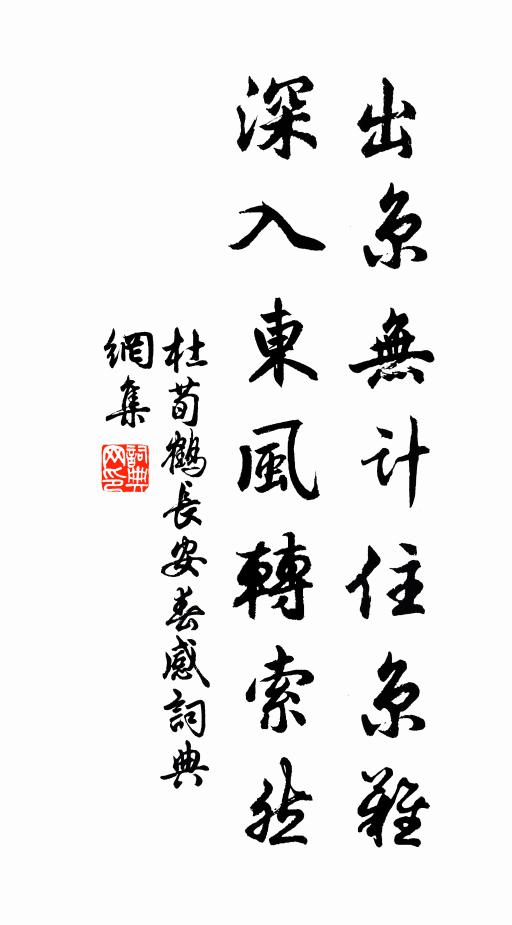 出京無計住京難
深入東風轉索然
杜荀鶴長安春感詞典
網集
詞典
网印